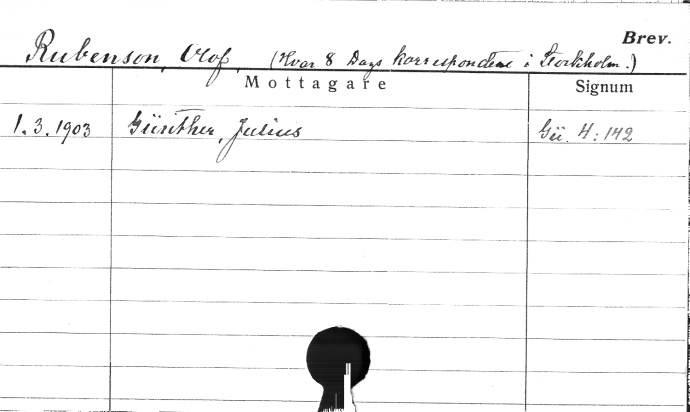 Brev.
Rubenson, Olof, (Hvar 8 Dags korrespondent i Stockholm.)
Mottagare Signum
1.3.1903 Günther, Julius Gü. 4:142